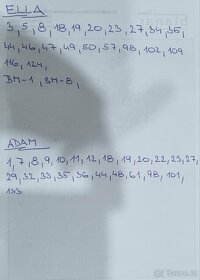 ELLA
3, 5, 8, 18, 19, 20, 23, 27, 34, 35,
44, 46, 47, 49, 50, 57, 98, 102, 109
116, 124,
BM-1, BM-8,
ADAM
1, 7, 8, 9, 10, 11, 12, 18, 19, 20, 22, 23, 27,
29, 32, 33, 35, 36, 44, 48, 61, 98, 101,
133
Bazoš.cz